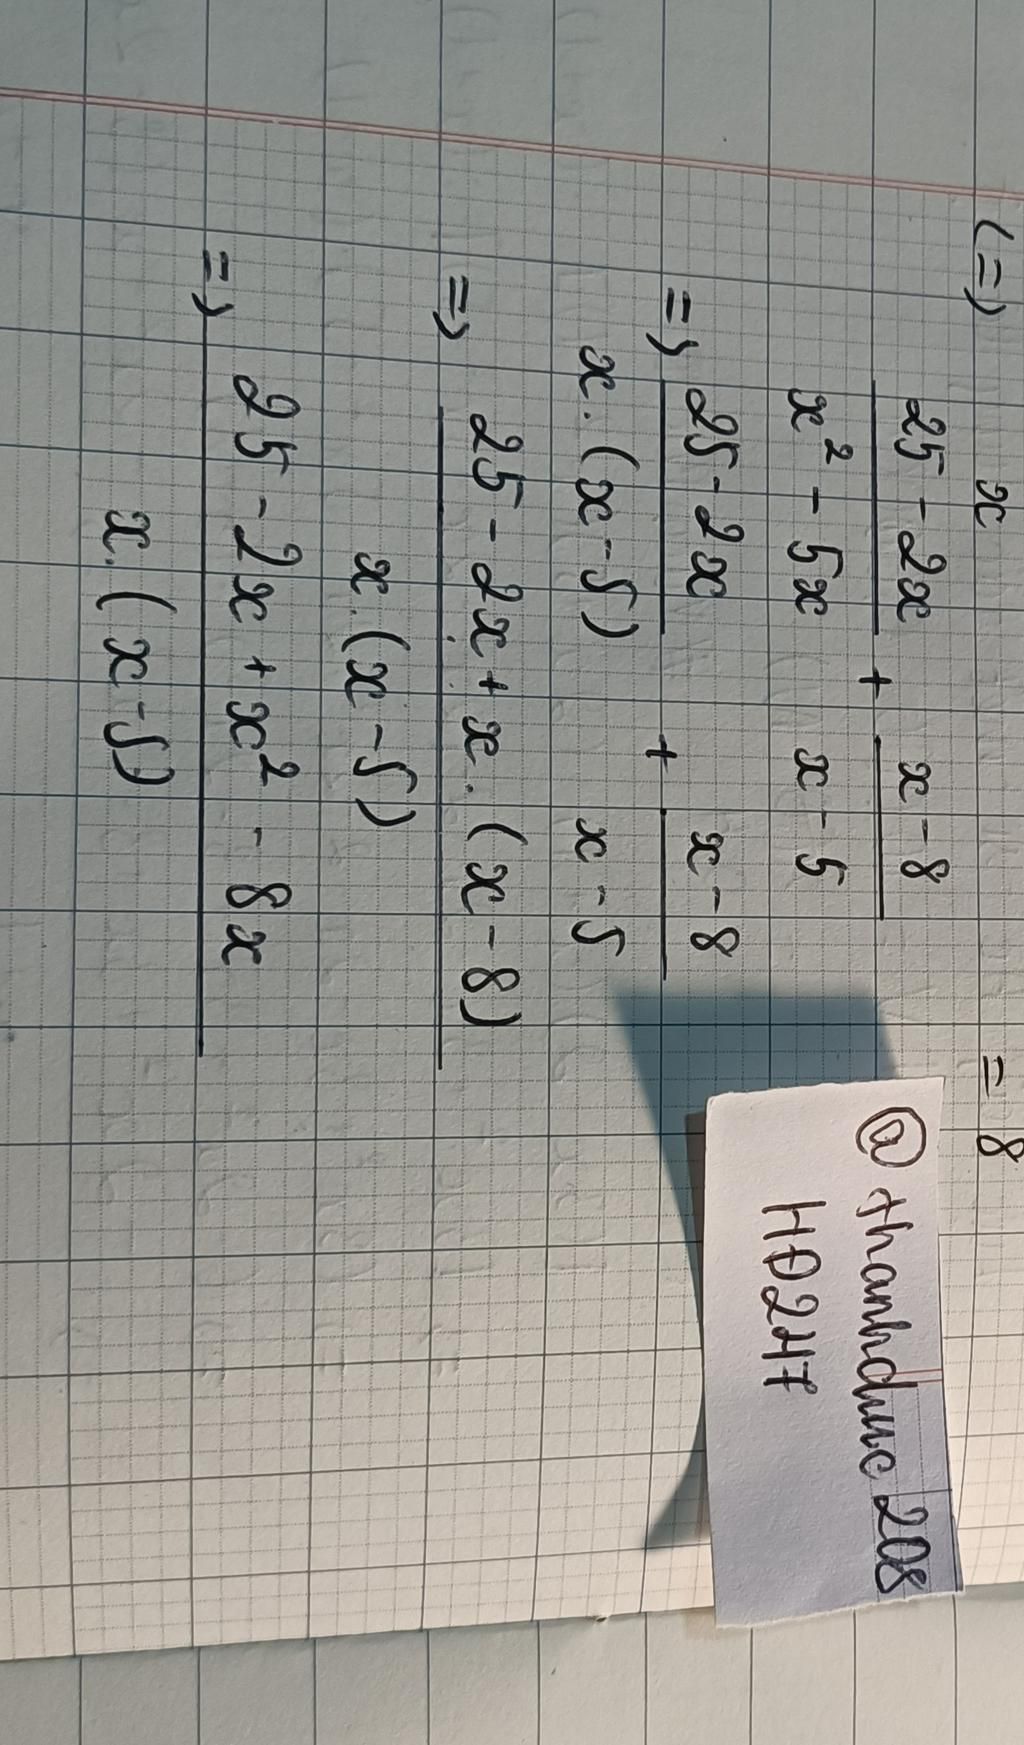 (=) x = 8
25 - 2x / x² - 5x + x - 8 / x - 5
=> 25 - 2x / x.(x - 5) + x - 8 / x - 5
=> 25 - 2x + x.(x - 8) / x.(x - 5)
=> 25 - 2x + x² - 8x / x.(x - 5)
@thanhduc208
HĐ247